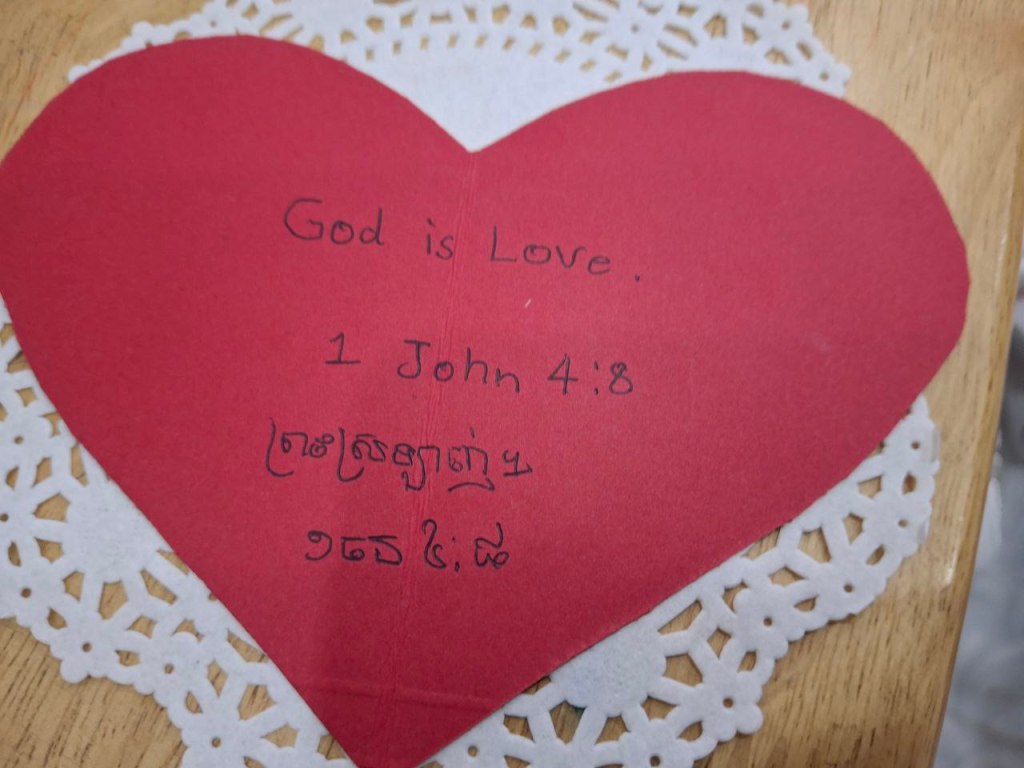 God is Love.
1 John 4:8
ព្រះស្រឡាញ់ ។
១ ៤:៨